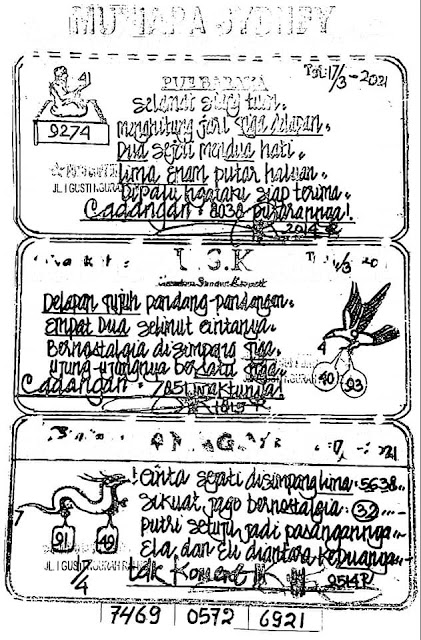 MUTIARA SYDNEY
41
9274
PURBARAYA
Tgl: 17/3-2021
Selamat siang tuan.
menghitung jari tiga delapan.
Dua sejoli mendua hati.
Lima Enam putar haluan.
siap terima.
Cadangan: 8038
2014
JL. I GUSTI NGURAH
Delapan tujuh pandang-pandangan.
Empat Dua selimut cintanya.
Bernostalgia di simpang tiga.
ujung-ujungnya bersatu tiga.
Cadangan: 7851
1815
40
93
!Cinta sejati disimpang lima: 5638...
Sikuat jago bernostalgia: 32...
putri setuju jadi pasangannya...
Ela dan Eli diantara keduanya...
tak koment
0514 P
91
49
JL. I GUSTI NGURAH
7/4
7469 0572 6921